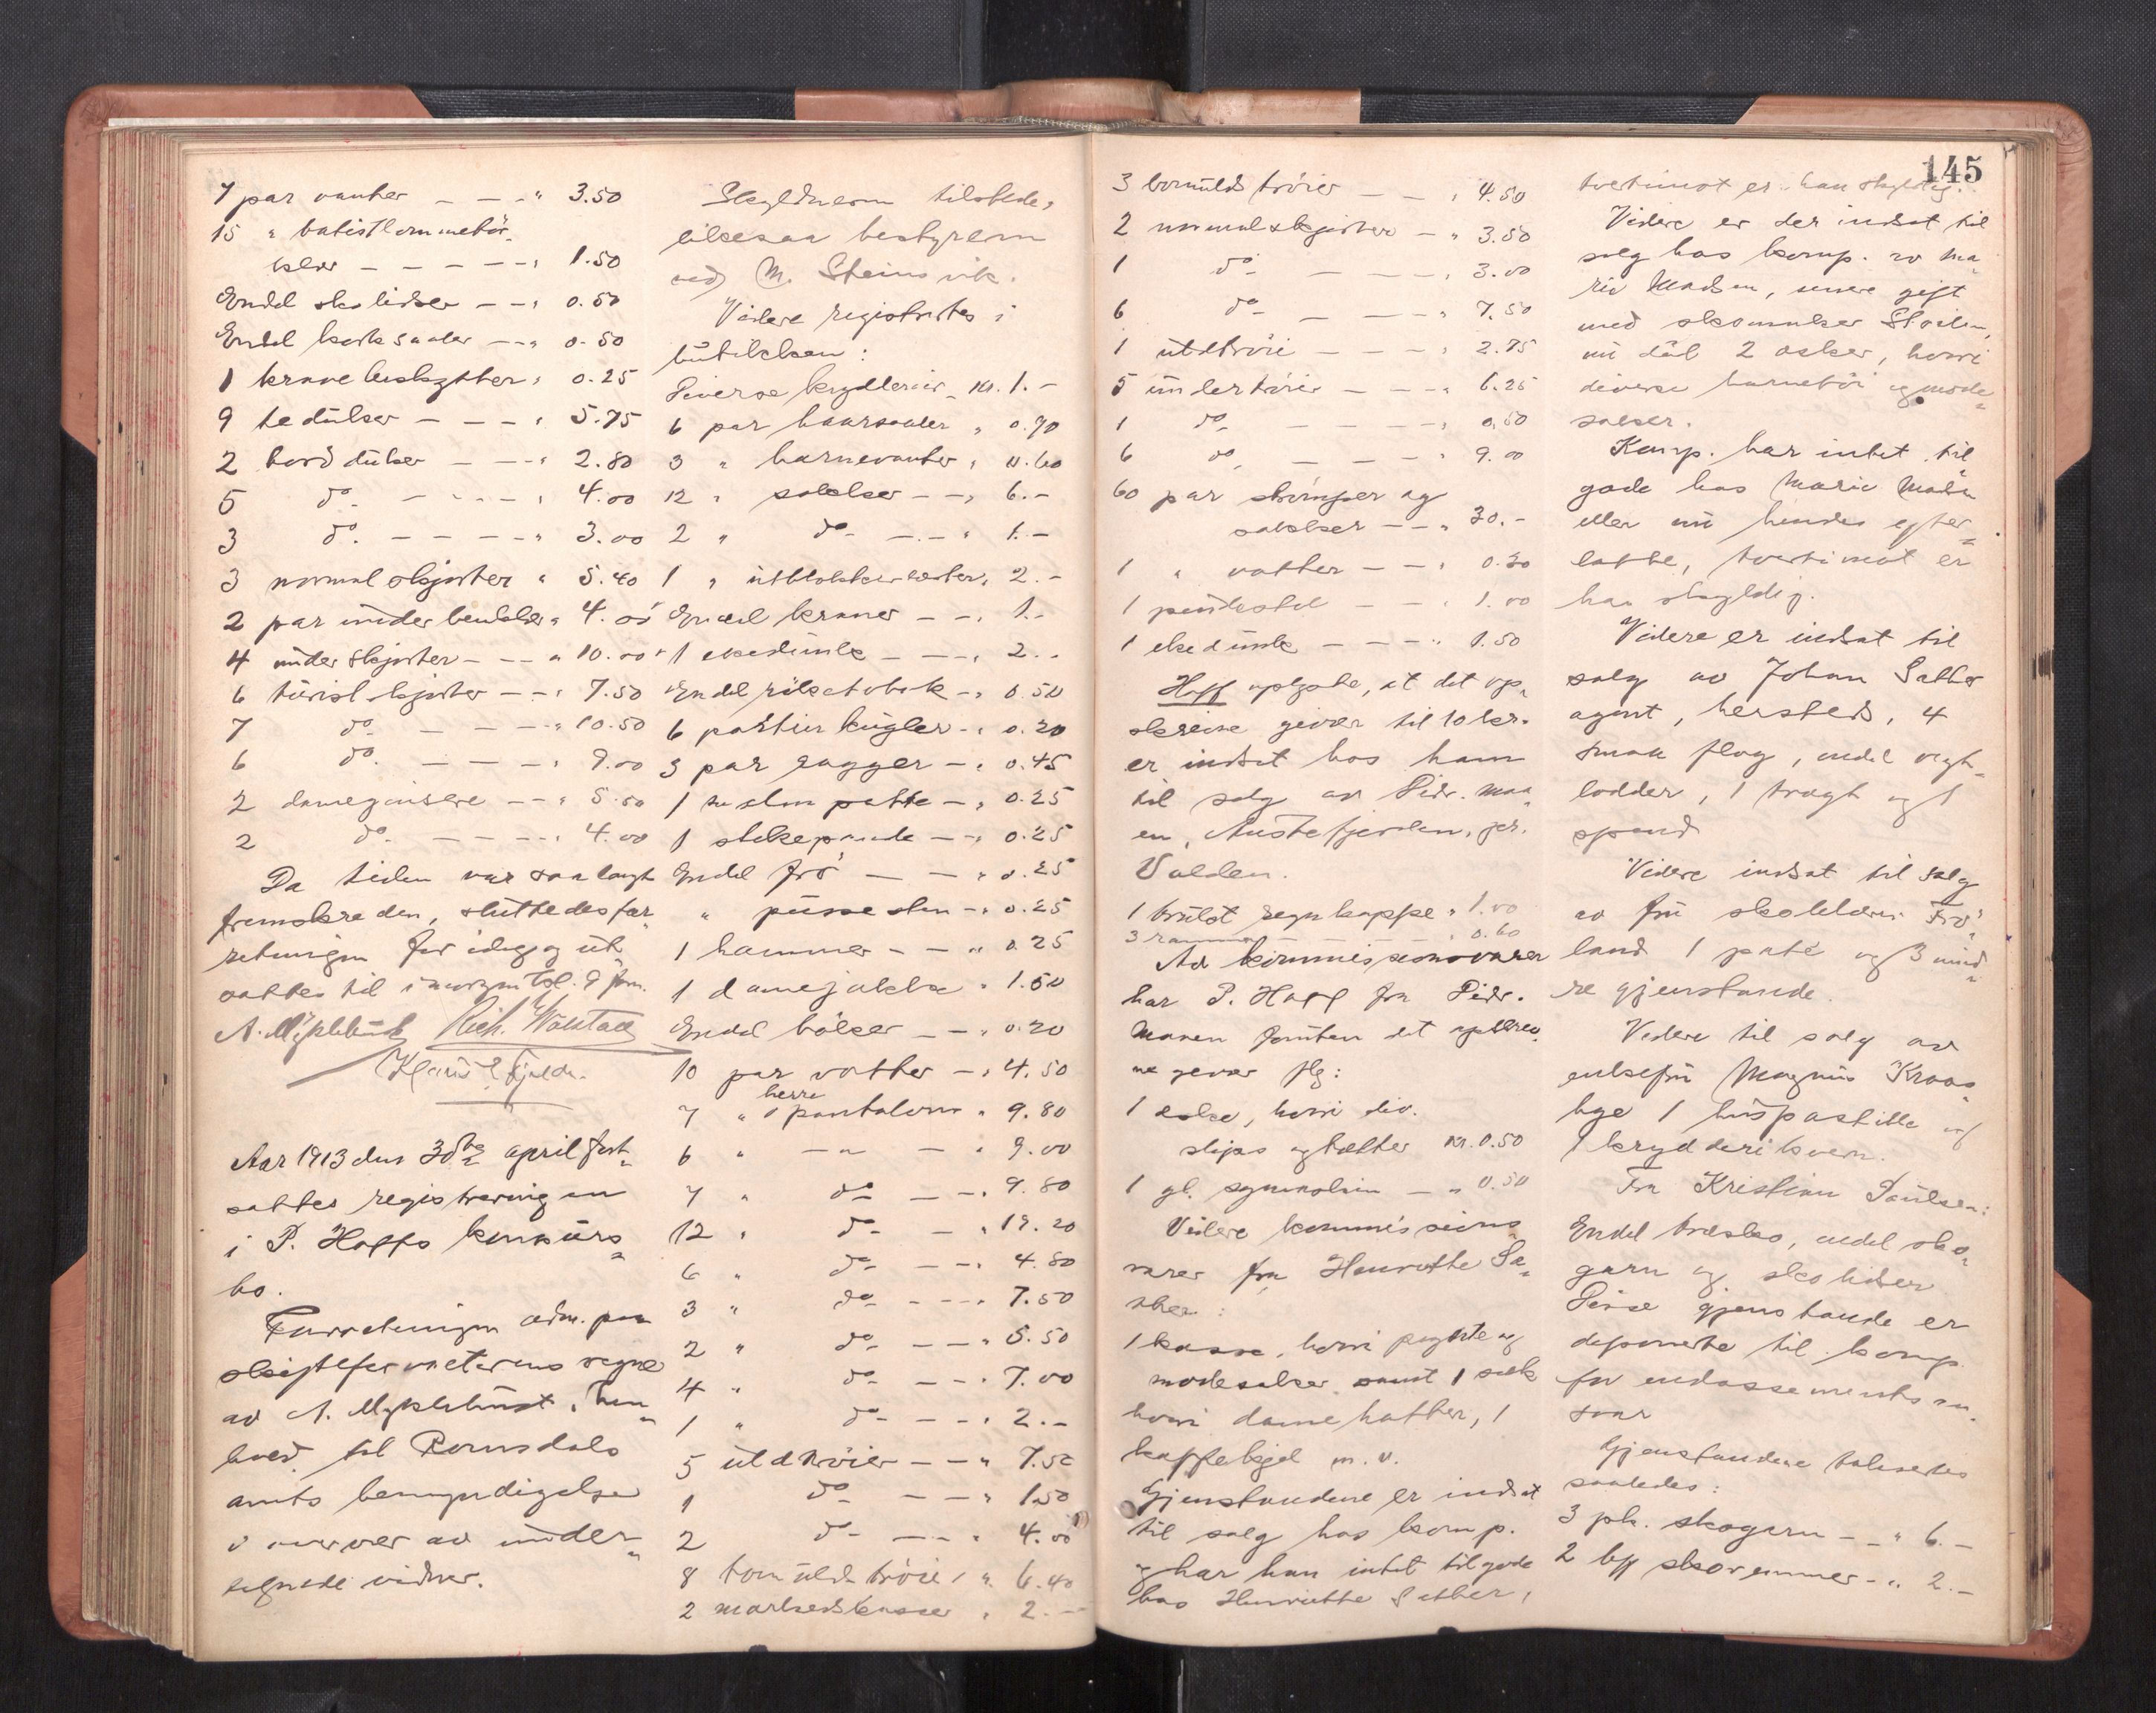 7 par vanter — — " 3.50
15 " batistlommetør-
klær — — — — " 1.50
Endel skolidser — — " 0.50
Endel korksaaler — — " 0.50
1 kravebeskytter " 0.25
9 teduker — — — " 5.75
2 bordduker — — " 2.80
5 do — — — " 4.00
3 do. — — — — " 3.00
3 normalskjorter " 5.40
2 par underbenklær " 4.00
4 underskjorter — — " 10.00
6 turistskjorter — — " 7.50
7 do — — — " 10.50
6 do. — — — — " 9.00
2 damegensere — — " 5.50
2 do. — — — — " 4.00
Da tiden var saa langt
fremskreden, sluttedes for-
retningen for idag og ut-
sattes til imorgen kl. 9 fm.
A. Myklebust Rich. Wolstad
Klaus E. Fjeldn.
Aar 1913 den 30te april fort-
sattes registreringen
i P. Hoffs konkurs-
bo.
Forretningen adm. paa
skifteforvalterens vegne
av A. Myklebust, hen-
hold til Romsdals
amts bemyndigelse
i overvær av under-
tegnede vidner.
Skyldneren tilstede,
likesaa bestyreren
ved M. Steinsvik.
Videre registrertes i
butikken:
Diverse krydderier kr. 1.-
6 par haarsaaler " 0.90
3 " barnevanter " 0.60
12 " sokker — — " 6.-
2 " do — — " 1.-
1 " utblokkerlester " 2.-
Endel kraner — — " 1.-
1 ekedunk — — — " 2.-
Endel røketobak — " 0.50
6 partier kugler — " 0.20
3 par ragger — " 0.45
1 sustom patte — " 0.25
1 stekepande — — " 0.25
Endel frø — — " 0.25
" pussesten — " 0.25
1 hammer — — " 0.25
1 damejakke " 1.50
Endel bøker — — " 0.20
10 par votter — " 4.50
7 " herre pantalons " 9.80
6 " — " — " 9.00
7 " do — — " 9.80
12 " do — " 19.20
6 " do — — " 4.80
3 " do — — — " 7.50
2 " do — — " 5.50
4 " do — — " 7.00
1 " do — — " 2.-
5 uldtrøier — — " 7.50
1 do — — " 1.50
2 do — — — " 4.00
8 bomuldstrøier " 6.40
2 markedskasser " 2.-
145
3 bomuldstrøier — — " 4.50
2 normalskjorter — " 3.50
1 do — — — " 3.00
6 do — — — " 7.50
1 uldtrøie — — — " 2.75
5 undertrøier — — — " 6.25
1 do — — — — " 0.50
6 do — — — " 9.00
60 par strømper og
sokker — — " 30.-
1 " votter — — " 0.30
1 pendestel — — " 1.00
1 ekedunk — — — " 1.50
Hoff oplyste, at det op-
skrevne gevær til 10 kr.
er indsat hos ham
til salg av Pedr. Maa-
en, Austefjorden, pr.
Volden.
1 brukt regnkappe " 1.00
3 rammer — — — — " 0.60
Av kommissionsvarer
har P. Hoff fra Pedr.
Maaen foruten det opskrev-
ne gevær flg:
1 eske, hvori div.
slips og hatter kr. 0.50
1 gl. symaskin — " 0.50
Videre kommissions-
varer fra Henriette Sæ-
ther:
1 kasse, hvori pynte og
motesaker samt 1 sæk
hvori damehatter, 1
kaffekjel m.v.
Gjenstandene er indsat
til salg hos komp.
og har han intet tilgode
hos Henriette Sæther,
tvertimot er han skyldig.
Videre er der indsat til
salg hos komp. av Ma-
rie Madsen, senere gift
med skomaker Stoilen,
nu død 2 æsker, hvori
diverse barnetøi og mote-
saker.
Komp. har intet til
gode hos Marie Madsen
eller nu hendes efter-
latte, tvertimot er
han skyldig.
Videre er indsat til
salg av Johan Sæther
agent, hersteds, 4
smaa flag, endel vegt-
lodder, 1 tragt og 1
spand
Videre indsat til salg
av fru skolelærer Frø-
land 1 paté og 3 mind-
re gjenstande.
Videre til salg av
enkefru Magnus Kraa-
kge 1 huspostille og
1 krydderikvern.
Fra Kristian Paulsen:
Endel træsko, endel sko-
garn og skolidser
Disse gjenstande er
deponerte til komp.
for endossements an-
svar
Gjenstandene takseres
saaledes:
3 pk. skogarn — — " 6.-
2 bff skoremmer — " 2.-